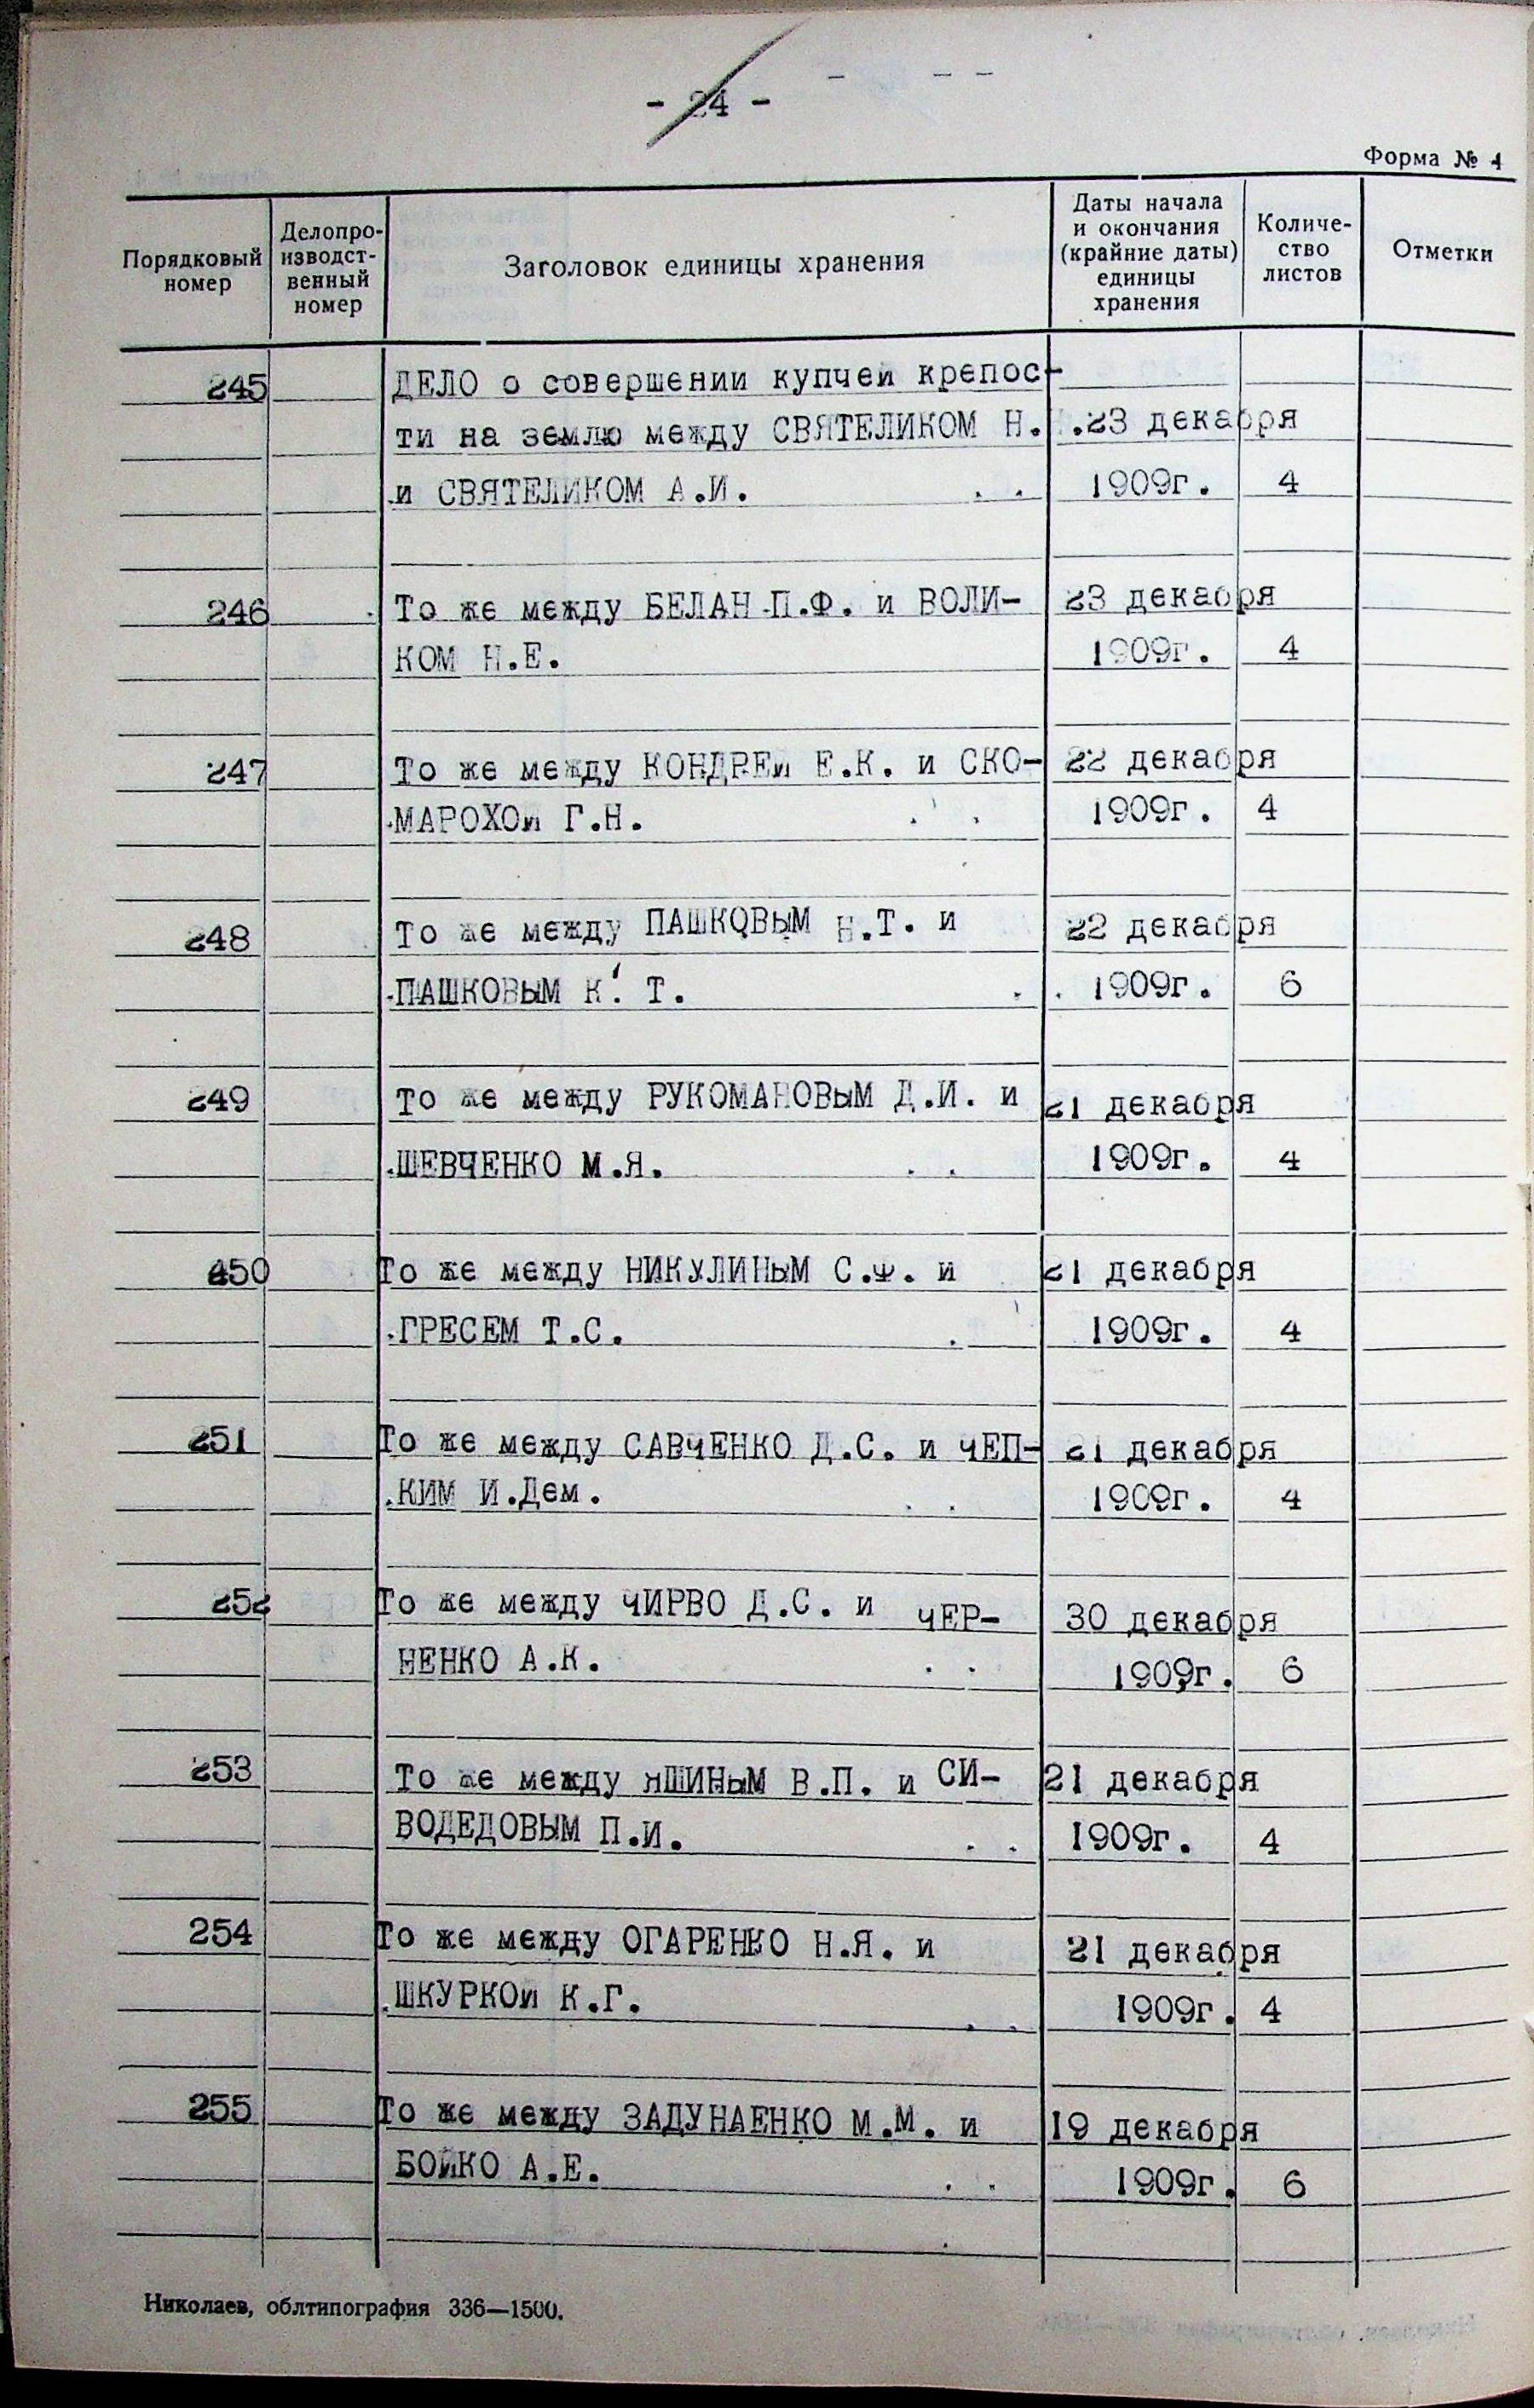 - 24 -
Форма № 4
Порядковый номер
Делопро-
изводст-
венный
номер
Заголовок единицы хранения
Даты начала
и окончания
(крайние даты)
единицы
хранения
Количе-
ство
листов
Отметки
245 ДЕЛО о совершении купчей крепос-
ти на землю между СВЯТЕЛИКОМ Н. .23 декабря
и СВЯТЕЛИКОМ А.И. 1909г. 4
246 То же между БЕЛАН П.Ф. и ВОЛИ- 23 декабря
КОМ Н.Е. 1909г. 4
247 То же между КОНДРЕЙ Е.К. и СКО- 22 декабря
МАРОХОЙ Г.Н. 1909г. 4
248 То же между ПАШКОВЫМ Н.Т. и 22 декабря
ПАШКОВЫМ К. Т. 1909г. 6
249 То же между РУКОМАНОВЫМ Д.И. и 21 декабря
ШЕВЧЕНКО М.Я. 1909г. 4
250 То же между НИКУЛИНЫМ С.Ф. и 21 декабря
ГРЕСЕМ Т.С. 1909г. 4
251 То же между САВЧЕНКО Д.С. и ЧЕП- 21 декабря
КИМ И.Дем. 1909г. 4
252 То же между ЧИРВО Д.С. и ЧЕР- 30 декабря
НЕНКО А.К. 1909г. 6
253 То же между ЯШИНЫМ В.П. и СИ- 21 декабря
ВОДЕДОВЫМ П.И. 1909г. 4
254 То же между ОГАРЕНКО Н.Я. и 21 декабря
ШКУРКОЙ К.Г. 1909г. 4
255 То же между ЗАДУНАЕНКО М.М. и 19 декабря
БОЙКО А.Е. 1909г. 6
Николаев, облтипография 336—1500.